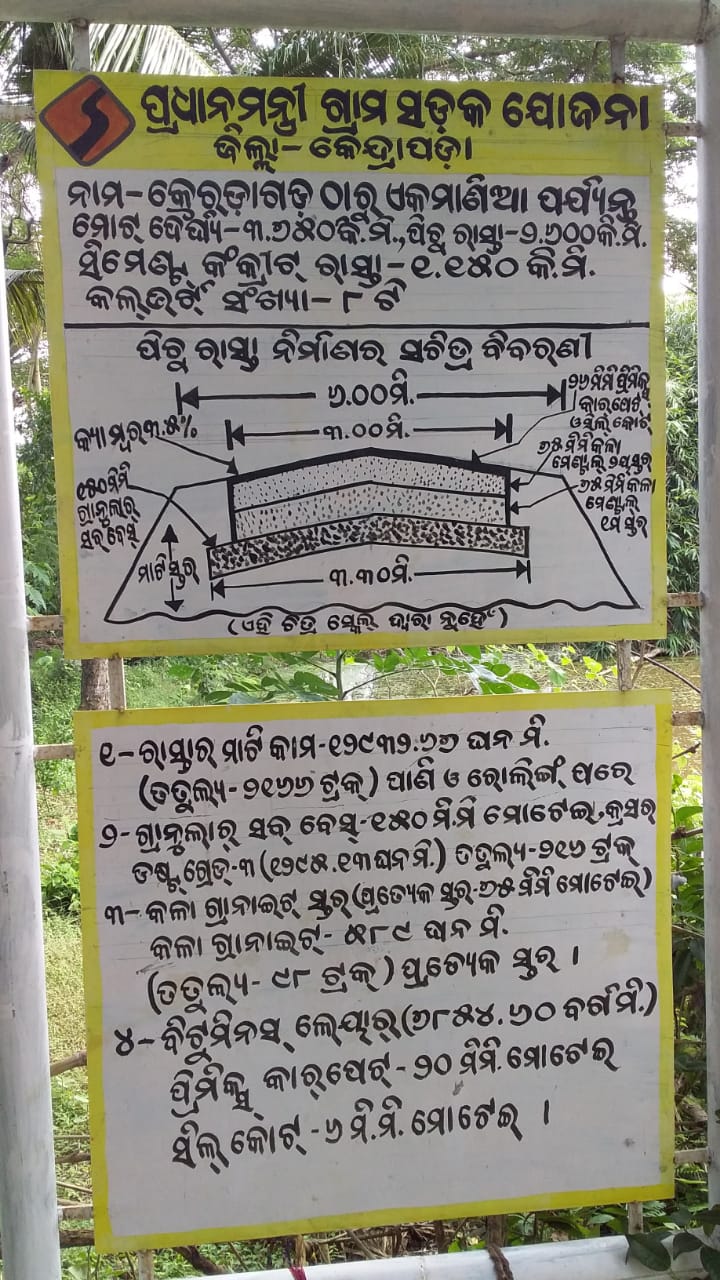 ପ୍ରଧାନମନ୍ତ୍ରୀ ଗ୍ରାମ ସଡ଼କ ଯୋଜନା
ଜିଲ୍ଲା- କେନ୍ଦ୍ରାପଡ଼ା
ନାମ-କେରଡ଼ାଗଡ଼ ଠାରୁ ଏକମାଣିଆ ପର୍ଯ୍ୟନ୍ତ
ମୋଟ ଦୈର୍ଘ୍ୟ-୩.୭୫୦କି.ମି., ପିଚୁ ରାସ୍ତା-୨.୬୦୦କି.ମି.
ସିମେଣ୍ଟ କଂକ୍ରୀଟ୍ ରାସ୍ତା-୧.୧୫୦ କି.ମି.
କଲ୍‌ଭର୍ଟ୍ ସଂଖ୍ୟା- ୮ ଟି
ପିଚୁ ରାସ୍ତା ନିର୍ମାଣର ସଚିତ୍ର ବିବରଣୀ
୬.୦୦ମି.
୨୬ ମିମି ପ୍ରିମିକ୍ସ
କାରପେଟ୍
ଓ ସିଲ୍ କୋଟ୍
୩.୦୦ମି.
କ୍ୟାମ୍ବର୩.୫%
୭୫ ମିମି କଳା
ମେଣ୍ଟାଲ୍ ୨ୟସ୍ତର
୭୫ ମିମି କଳା
ମେଣ୍ଟାଲ୍
୧ମ ସ୍ତର
୧୫୦ମିମି
ଗ୍ରାନୁଲାର୍
ସବ୍ ବେସ୍
ମାଟି ସ୍ତର
୩.୩୦ମି.
(ଏହି ଚିତ୍ର ସ୍କେଲ ଦ୍ୱାରା ନୁହେଁ)
୧- ରାସ୍ତାର ମାଟି କାମ-୧୨୯୩୨.୬୭ ଘନ ମି.
(ତତୁଲ୍ୟ- ୨୧୬୬ ଟ୍ରକ୍) ପାଣି ଓ ରୋଲିଙ୍ଗ୍ ପରେ
୨- ଗ୍ରାନୁଲାର୍ ସବ୍ ବେସ୍-୧୫୦ ମି.ମି ମୋଟେଇ, କ୍ରସର
ଡଷ୍ଟ ଗ୍ରେଡ-୩ (୧୨୯୫.୧୩ ଘନମି.) ତତୁଲ୍ୟ-୨୧୬ ଟ୍ରକ୍
୩- କଳା ଗ୍ରାନାଇଟ୍ ସ୍ତର(ପ୍ରତ୍ୟେକ ସ୍ତର-୭୫ ମିମି ମୋଟେଇ)
କଳା ଗ୍ରାନାଇଟ୍- ୫୮୯ ଘନ ମି.
(ତତୁଲ୍ୟ- ୯୮ ଟ୍ରକ୍) ପ୍ରତ୍ୟେକ ସ୍ତର ।
୪- ବିଟୁମିନସ୍ ଲେୟାର୍(୭୮୫୪.୬୦ ବର୍ଗମି.)
ପ୍ରିମିକ୍ସ୍ କାର୍‌ପେଟ୍ - ୨୦ ମିମି. ମୋଟେଇ
ସିଲ୍ କୋଟ୍ -୬ ମି.ମି. ମୋଟେଇ ।